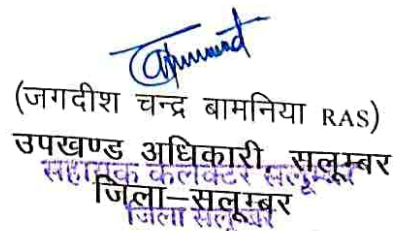 (जगदीश चन्द्र बामनिया RAS)
उपखण्ड अधिकारी, सलूम्बर
सहायक कलेक्टर सलूम्बर
जिला–सलूम्बर
जिला सलूम्बर